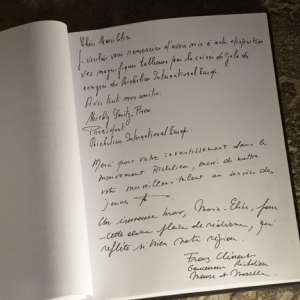 je voulais vous remercier d'avoir mis à notre disposition
vos magnifiques tableaux pour la soirée de gala du
congrès du Richelieu International Europe.
Avec tout mon amitié.
Président
Richelieu International Europe.
Merci pour votre investissement dans le
mouvement Richelieu, merci de mettre
votre merveilleux talent au service des
jeunes
Un immense bravo, Marie-Elise, pour
cette œuvre pleine de réalisme, qui
reflète si bien notre région.
Gouverneur Richelieu
Meuse et Moselle